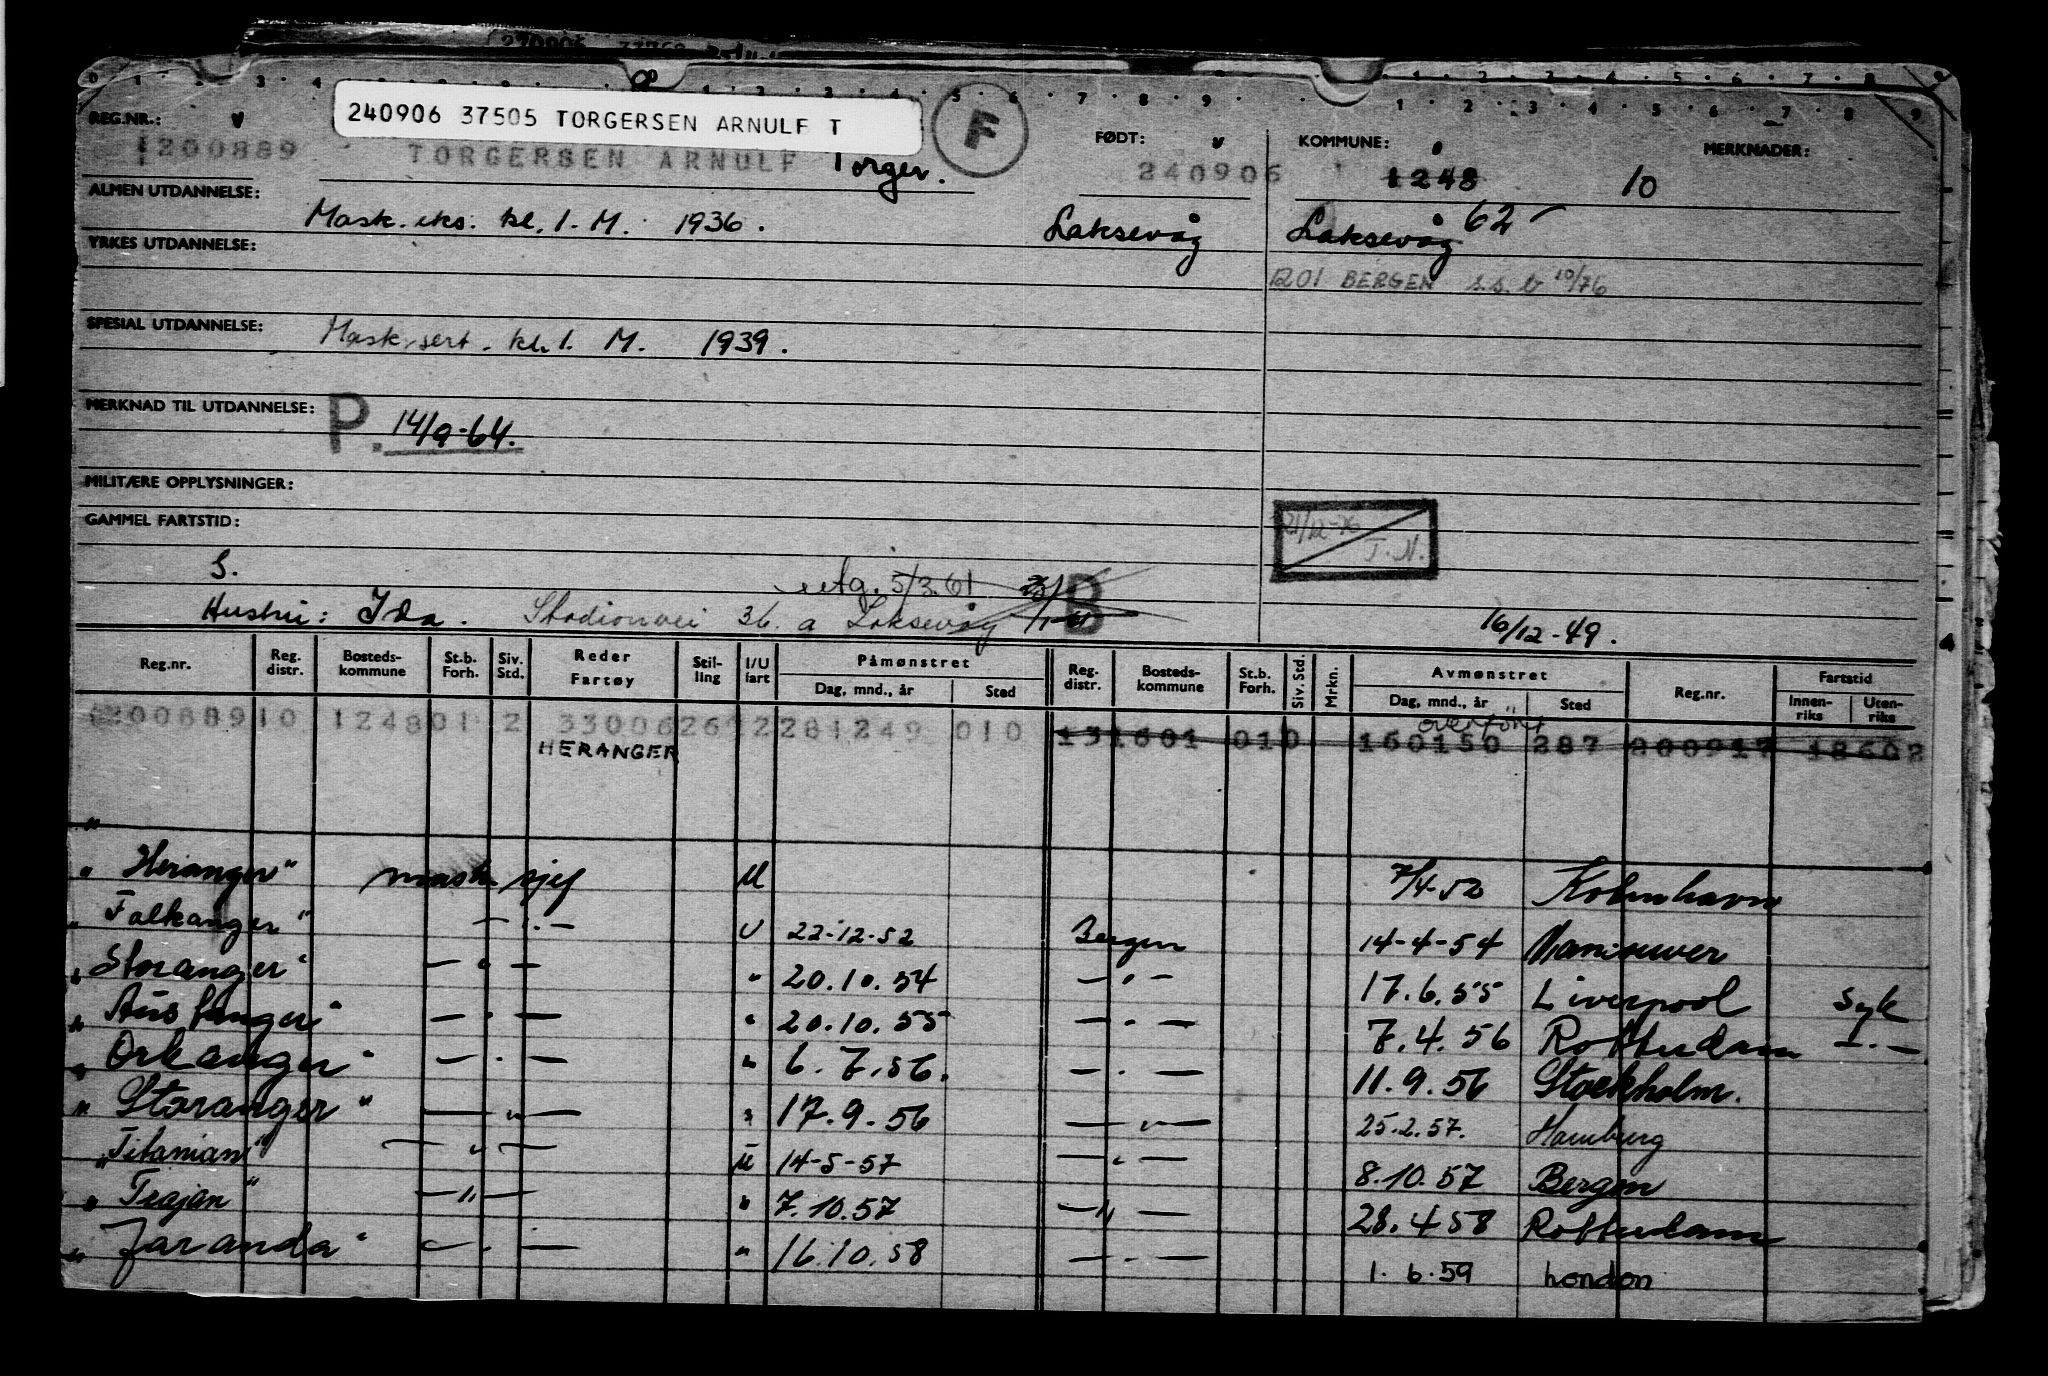 240906 37505 TORGERSEN ARNULF T
F
REG.NR.:
1200889 TORGERSEN ARNULF Torger.
FØDT:
240906
KOMMUNE:
1248
MERKNADER:
10
ALMEN UTDANNELSE:
Mask. eks. kl. 1. M. 1936.
Laksevåg
Laksevåg 62
YRKES UTDANNELSE:
1201 BERGEN s.s.b 10/76
SPESIAL UTDANNELSE:
Mask. sert. kl. 1. M. 1939.
MERKNAD TIL UTDANNELSE:
P. 14/9-64.
MILITÆRE OPPLYSNINGER:
GAMMEL FARTSTID:
21/12-76 T.N.
S.
5/3.61
B
Hustru: Ida. Stadionvei 36. a Laksevåg
16/12-49.
Reg.nr. Reg. distr. Bosteds-kommune St.b. Forh. Siv. Std. Reder Fartøy Stil-ling I/U fart Påmønstret Dag, mnd., år Sted Reg. distr. Bosteds-kommune St.b. Forh. Siv. Std. Mrkn. Avmønstret Dag, mnd., år Sted Reg.nr. Fartstid Innen-riks Uten-riks
1200889 10 1248 01 2 3300626 12 281249 010 131601 010 160150 287 200917 18602
overført
HERANGER
"
"Heranger" mask sjef U 7/4-52 København
"Falkanger" — . — U 22-12-52 Bergen 14-4-54 Vancouver
"Storanger" — " — " 20.10.54 — " — 17.6.55 Liverpool Syk
"Austanger" — . — " 20.10.55 — . — 7.4.56 Rotterdam — . —
"Orkanger" — . — " 6.7.56. — . — 11.9.56 Stockholm.
"Storanger" — " — " 17.9.56 — " — 25.2.57. Hamburg
"Titanian" — " — U 14-5-57 — " — 8.10.57 Bergen
"Trajan" — " — " 7.10.57 — " — 28.4 58 Rotterdam
"Jaranda" — . — " 16.10.58 — . — 1.6.59 London